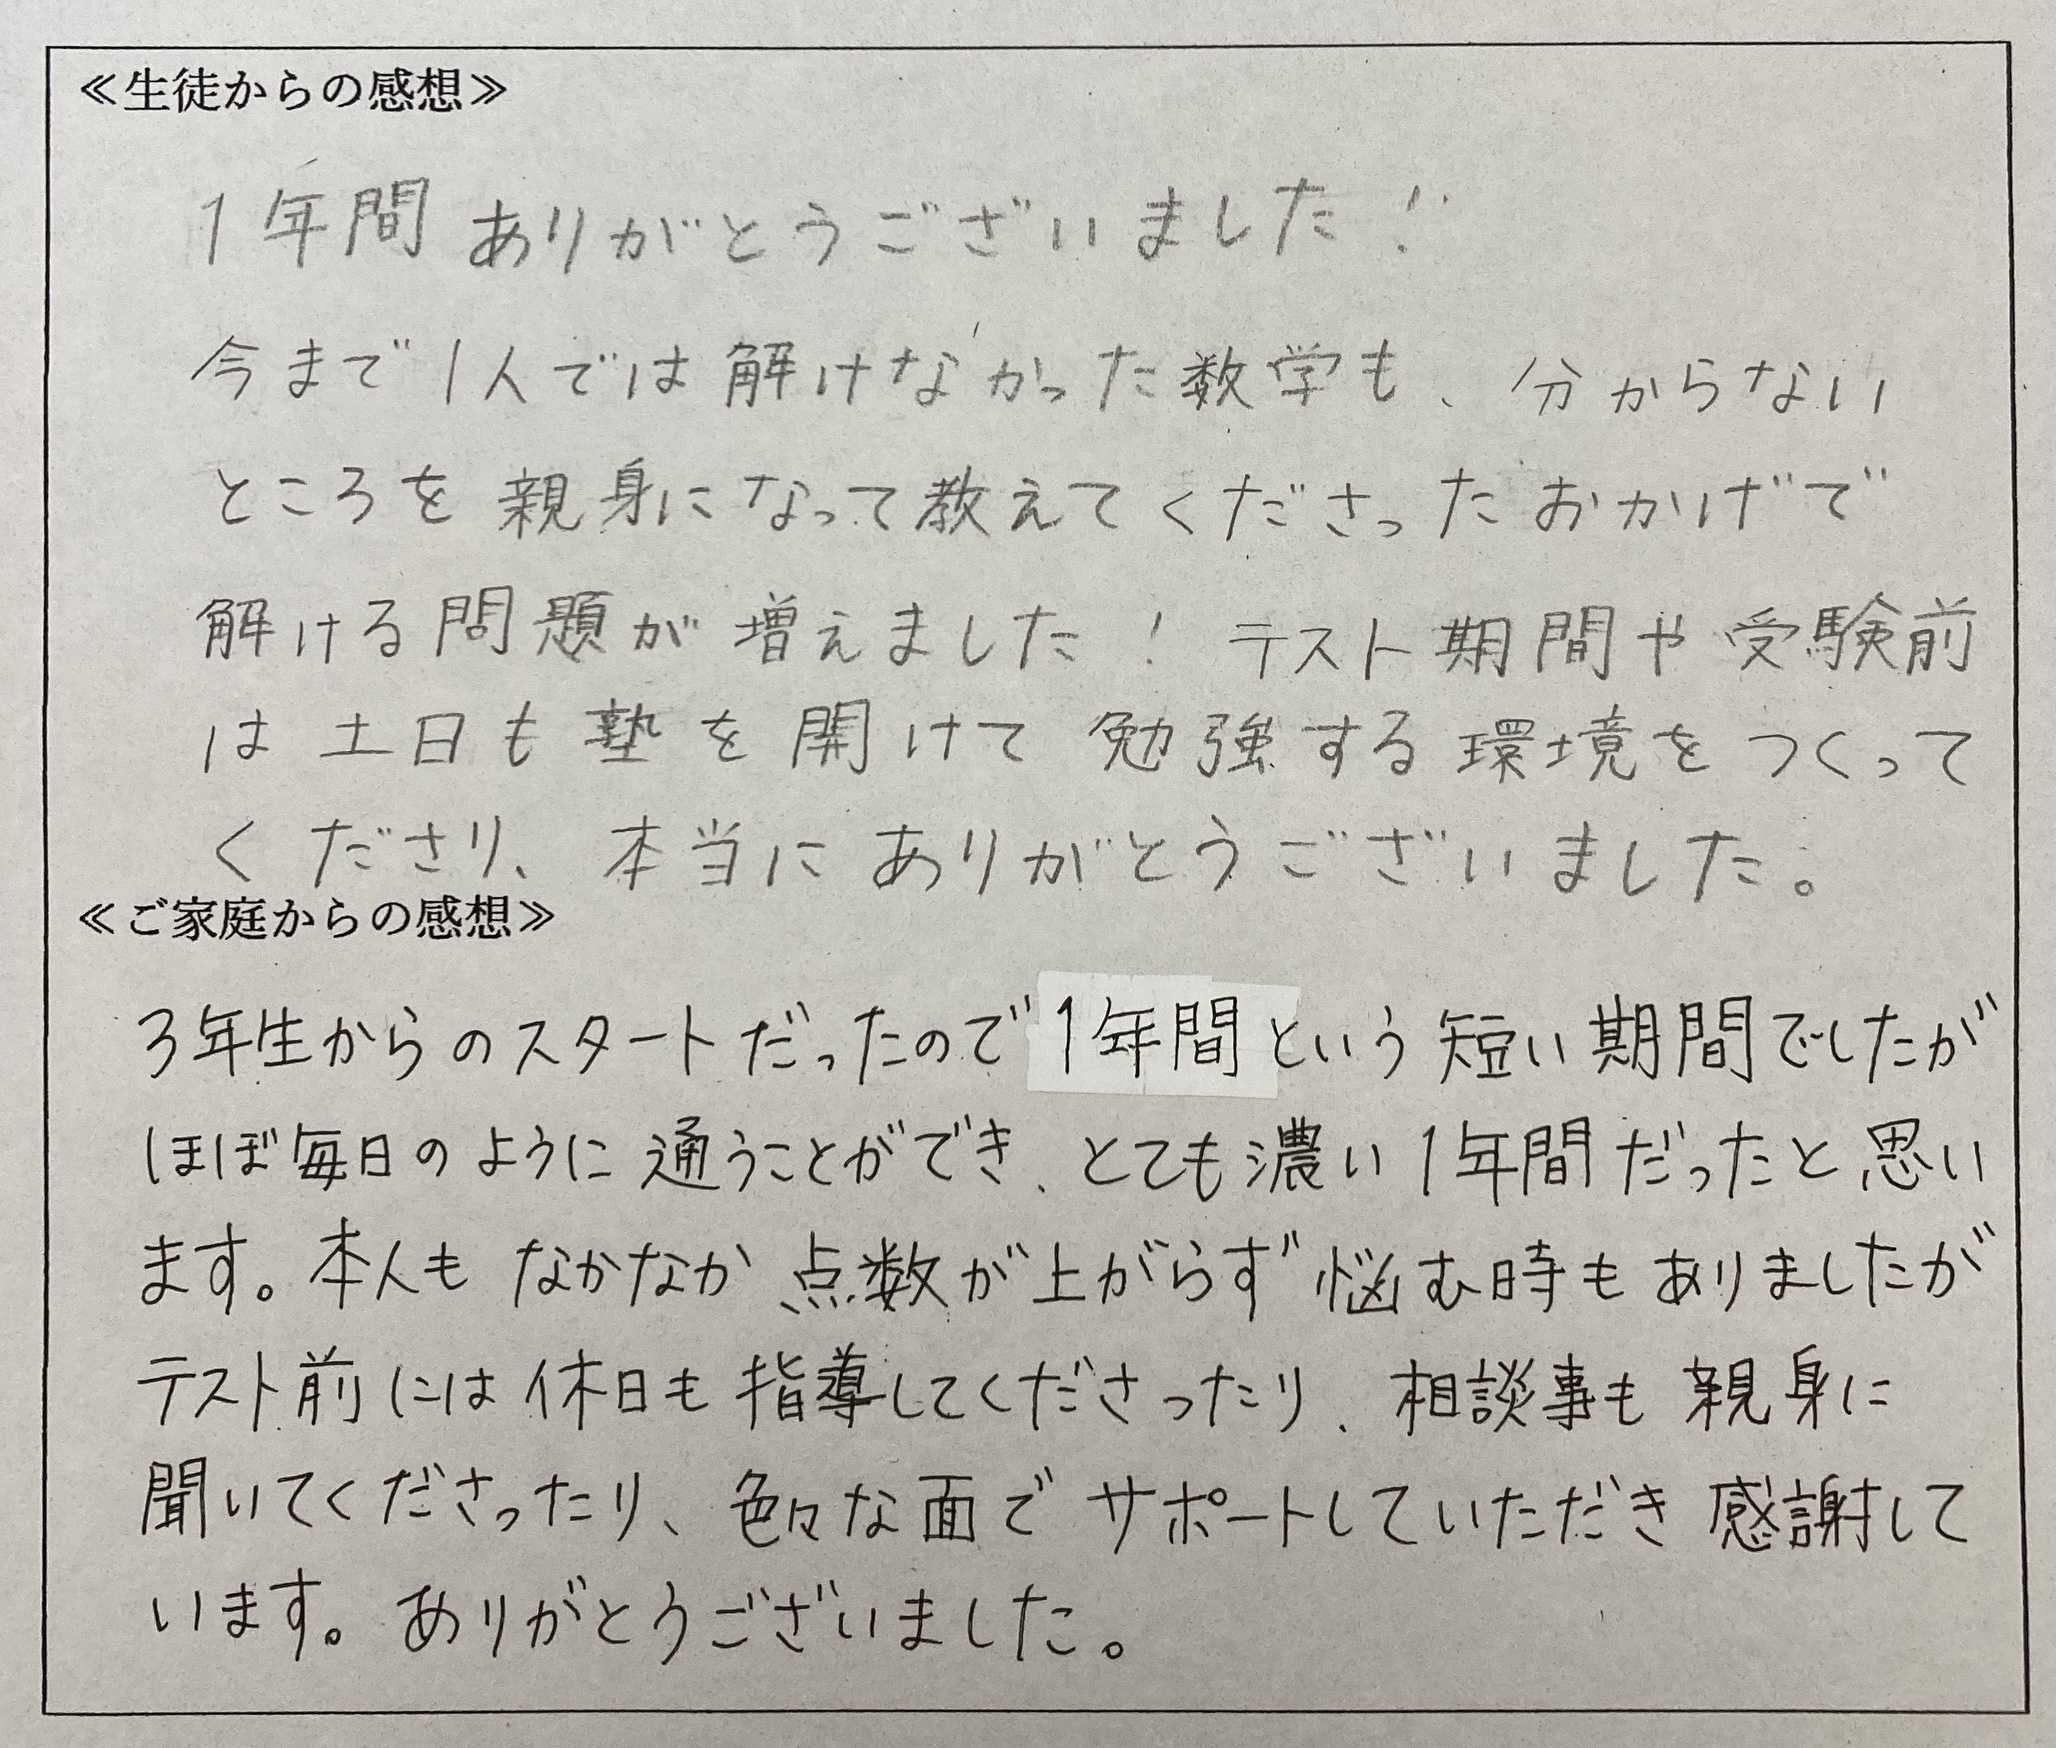 ≪生徒からの感想≫
1年間ありがとうございました!!
今まで1人では解けなかった数学も、分からない
ところを親身になって教えてくださったおかげで
解ける問題が増えました!テスト期間や受験前
は土日も塾を開けて勉強する環境をつくって
くださり、本当にありがとうございました。
≪ご家庭からの感想≫
3年生からのスタートだったので1年間という短い期間でしたが
ほぼ毎日のように通うことができ、とても濃い1年間だったと思い
ます。本人もなかなか点数が上がらず悩む時もありましたが
テスト前には休日も指導してくださったり、相談事も親身に
聞いてくださったり、色々な面でサポートしていただき感謝して
います。ありがとうございました。